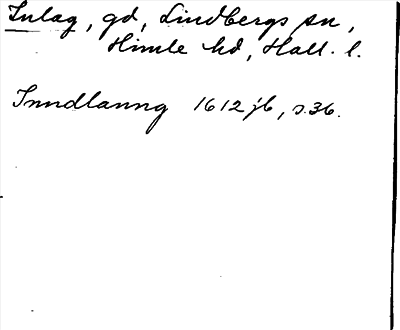 Inlag, gd, Lindbergs sn,
Himle hd, Hall. l.
Inndlanng 1612 jb, s. 36.